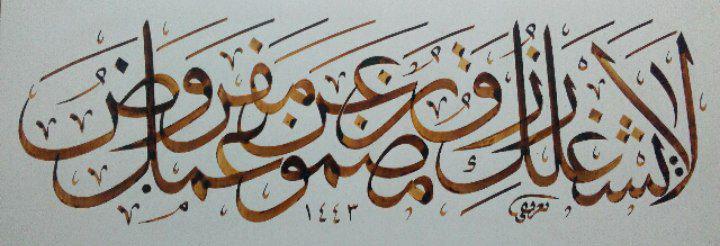 لا يشغلك رزق مضمون عن عمل مفروض
١٤٤٣